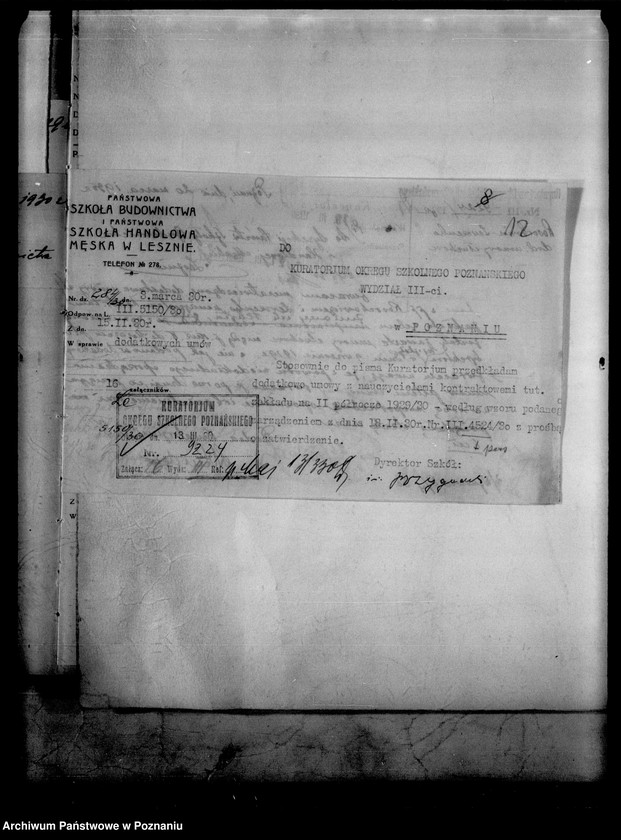 8
12
PAŃSTWOWA
SZKOŁA BUDOWNICTWA
I PAŃSTWOWA
SZKOŁA HANDLOWA
MĘSKA W LESZNIE.
TELEFON № 278.
DO
KURATORJUM OKRĘGU SZKOLNEGO POZNAŃSKIEGO
WYDZIAŁ III-ci.
w P O Z N A N I U
Nr. dz. 284/30 dn. 8.marca 30r.
Odpow. na L. III.5150/30
Z dn. 15.II.30r.
W sprawie dodatkowych umów
16 załączników.
Stosownie do pisma Kuratorjum przedkładam
dodatkowe umowy z nauczycielami kontraktowemi tut.
zakładu na II półrocze 1929/30 - według wzoru podaneg
zarządzeniem z dnia 18.II.30r.Nr.III.4524/30 z prośbą
o zatwierdzenie.
Dyrektor Szkół:
KURATORJUM
OKRĘGU SZKOLNEGO POZNAŃSKIEGO
13 III 30
Nr. 9224
Załącz. 16 Wydz. III Ref.
5150/30
13/3 30
1930
Archiwum Państwowe w Poznaniu